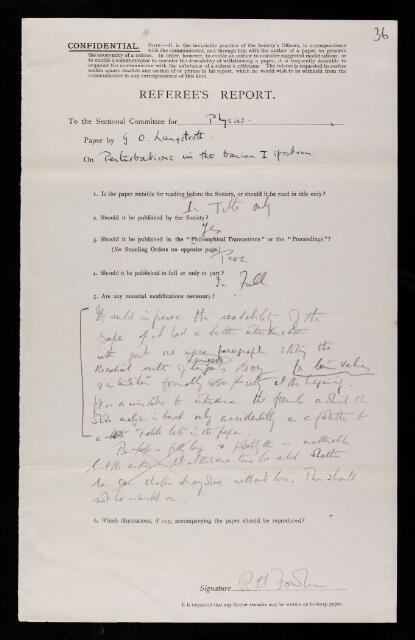 36
CONFIDENTIAL. NOTE—It is the invariable practice of the Society's Officers, in correspondence
with the communicator, and through him with the author of a paper, to preserve
the anonymity of a referee. In order, however, to enable an author to consider suggested modifications, or
to enable a communicator to consider the desirability of withdrawing a paper, it is frequently desirable to
acquaint the communicator with the substance of a referee's criticisms. The referee is requested to enclose
within square brackets any section of or phrase in his report, which he would wish to be withheld from the
communicator in any correspondence of this kind.
REFEREE'S REPORT.
To the Sectional Committee for Physics.
Paper by G. O. Langstroth
On Perturbations in the barium I spectrum
1. Is the paper suitable for reading before the Society, or should it be read in title only?
In Title only
2. Should it be published by the Society?
Yes
3. Should it be published in the "Philosophical Transactions" or the "Proceedings"?
(See Standing Orders on opposite page.)
Proc
4. Should it be published in full or only in part?
In Full
5. Are any material modifications necessary?
It would improve the readability of the
paper if it had a better introduction
with just one more paragraph stating the
theoretical results of Langer's theory for term values
at the beginning.
to introduce the formula on which the
whole analysis is based only accidentally as a footnote to
a Table late in the paper.
The paper is fully long
the author at the same time be asked whether
he can shorten it anywhere without loss. This should
not be insisted on.
6. Which illustrations, if any, accompanying the paper should be reproduced?
Signature R H Fowler
It is requested that any further remarks may be written on foolscap paper.